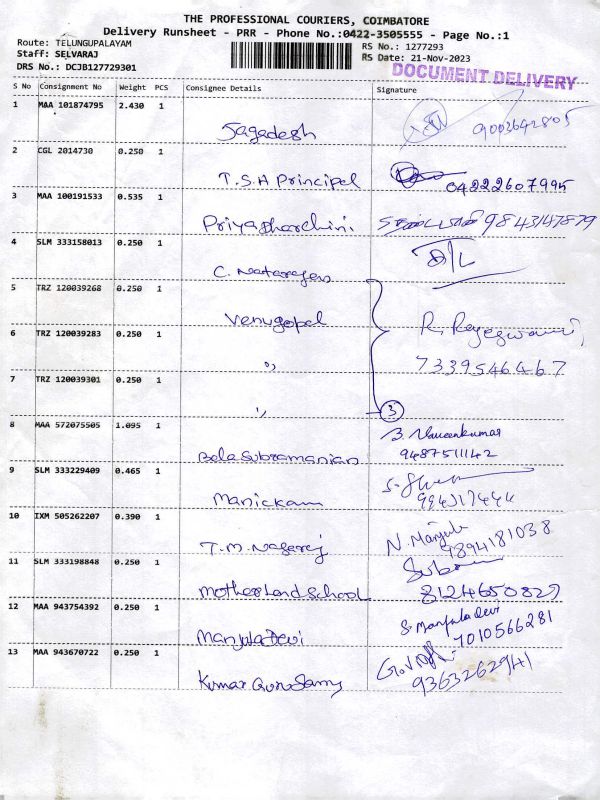 THE PROFESSIONAL COURIERS, COIMBATORE
Delivery Runsheet - PRR - Phone No.:0422-3505555 - Page No.:1
Route: TELUNGUPALAYAM
RS No.: 1277293
Staff: SELVARAJ
RS Date: 21-Nov-2023
DRS No.: DCJB127729301
DOCUMENT DELIVERY
S No Consignment No Weight PCS Consignee Details Signature
1 MAA 101874795 2.430 1
Jagadesh 9003642805
2 CGL 2014730 0.250 1
T.S.A Principel 04222607995
3 MAA 100191533 0.535 1
Priyadharchini 9843147879
4 SLM 333158013 0.250 1
C. Natarajen D/L
5 TRZ 120039268 0.250 1
Venugopal R. Rajeswari
6 TRZ 120039283 0.250 1
" 7339546467
7 TRZ 120039301 0.250 1
" 3
8 MAA 572075505 1.095 1
Balasubramanian B. Naveenkumar
9487511142
9 SLM 333229409 0.465 1
Manickam 994317444
10 IXM 505262207 0.390 1
T.M. Nagaraj N. Manjula
9894181038
11 SLM 333198848 0.250 1
Motherland School 8124650829
12 MAA 943754392 0.250 1
Manjula Devi S. Manjula Devi
7010566281
13 MAA 943670722 0.250 1
Kumar Guru Samy 9363262941